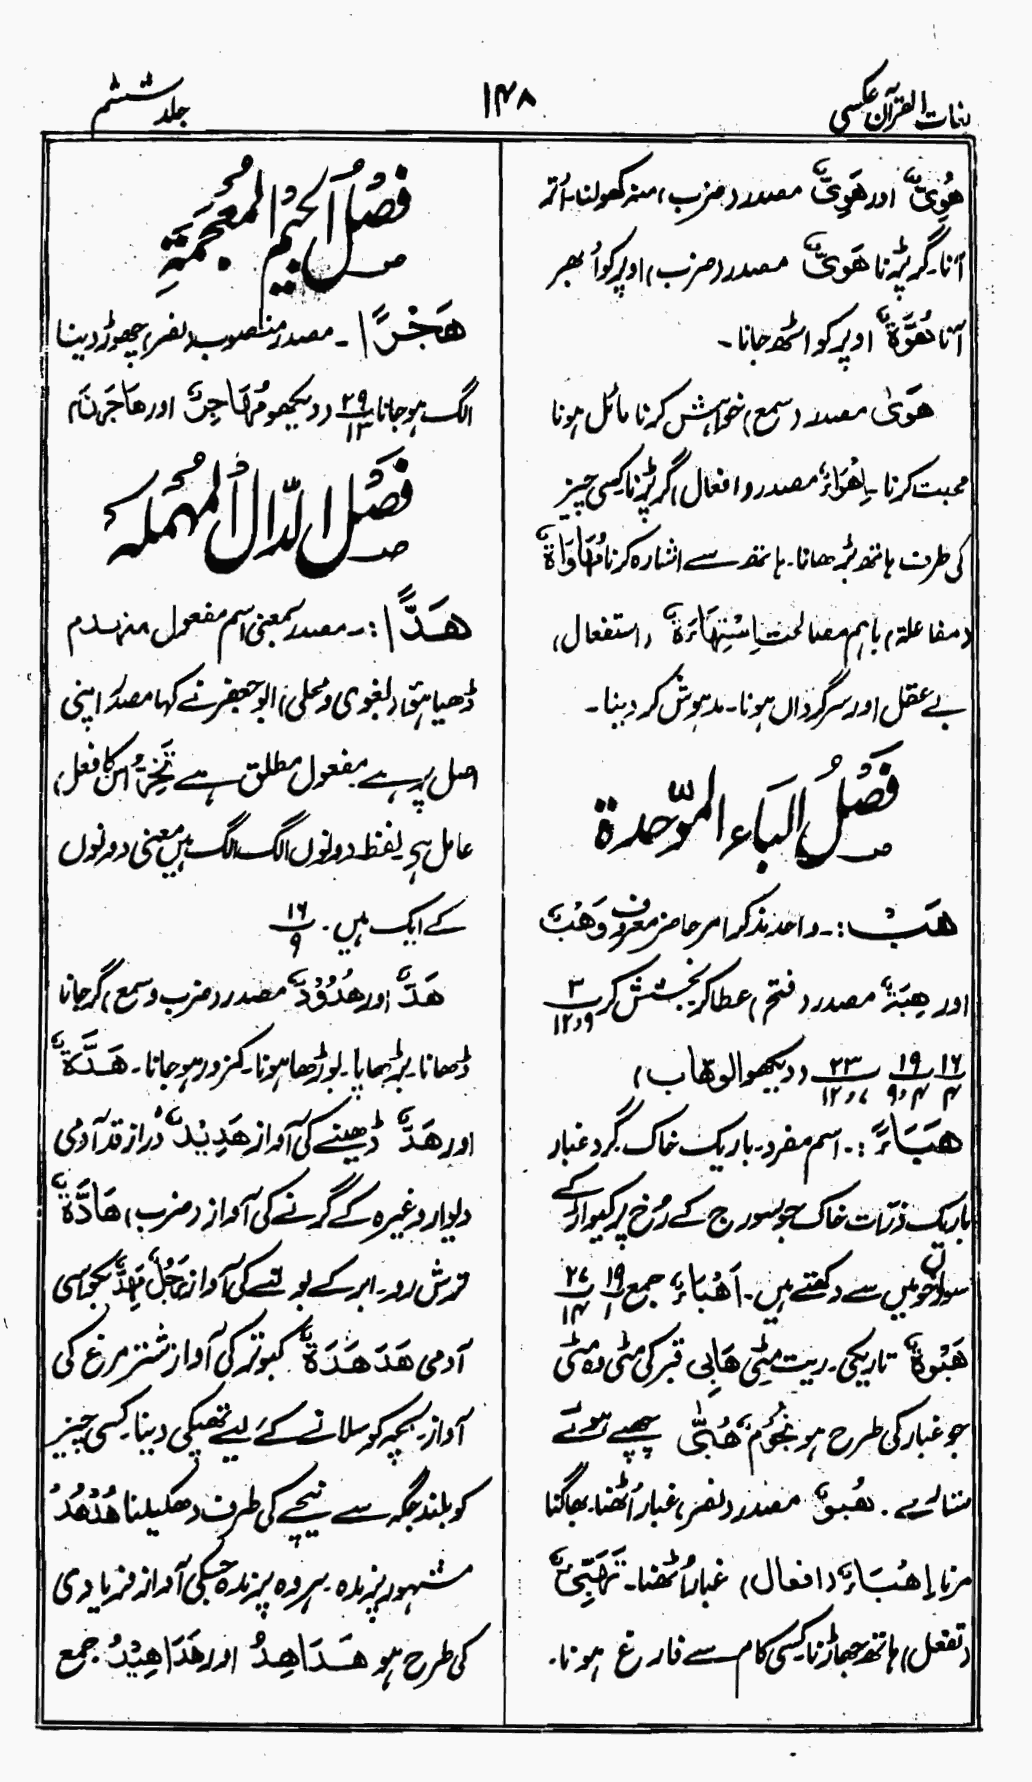 لغات القرآن عکسی
۱۴۸
جلد ششم
هُوِیٌّ اور هَوِیٌّ مصدر (ضرب) منہ کھولنا۔ اُتر
آنا۔ گر پڑنا هَوِیٌّ مصدر (ضرب) اوپر کو اُبھر
آنا هُوَّةٌ اوپر کو اٹھ جانا۔
هَوًی مصدر (سمع) خواہش کرنا مائل ہونا
محبت کرنا۔ اِهْوَاءٌ مصدر (افعال) گر پڑنا کسی چیز
کی طرف ہاتھ بڑھانا۔ ہاتھ سے اشارہ کرنا مُهَاوَاةٌ
(مفاعلۃ) باہم مصالحت اِسْتِهَارَةٌ (استفعال)
بے عقل اور سرگرداں ہونا۔ مدہوش کر دینا۔
فَصْلُ الْبَاءِ الموّحدة
هَبْ :۔ واحد مذکر امر حاضر معروف وَهْبٌ
اور هِبَةٌ مصدر (فتح) عطا کر بخشش کر ۳/۱۲،۹
۱۶/۴ ۱۹/۹،۴ ۲۳/۱۲،۷ (دیکھو الوهاب)
هَبَاءً :۔ اسم مفرد۔ باریک خاک گرد غبار
باریک ذرّات خاک جو سورج کے رُخ پر کیواڑ کے
سوراخوں میں سے دکھتے ہیں۔ اَهْبَاءٌ جمع ۱۹/۱ ۲۷/۱۴
هَبْوَةٌ تاریکی۔ ریت مٹی هَابِی قبر کی مٹی وہ مٹی
جو غبار کی طرح ہو نُجُوْمٌ هُبًّی چھپے ہوئے
ستارے۔ هُبُوٌّ مصدر (نصر) غبار اُٹھنا۔ بھاگنا
مرنا اِهْبَاءٌ (افعال) غبار اُٹھنا۔ تَهَبِّیْ
(تفعل) ہاتھ جھاڑنا کسی کام سے فارغ ہونا۔
فَصْلُ الْجِیْمِ الْمُعْجَمَةِ
هَجْرًا۔ مصدر منصوب (نصر) چھوڑ دینا
الگ ہو جانا ۲۹/۱۳ (دیکھو مُهَاجِرٌ اور هَاجَرْنَ م
فَصْلُ الدَّالِ الْمُهْمَلَه
هَدًّا :۔ مصدر بمعنی اسم مفعول منہدم
ڈھیا ہوا (بغوی و محلی) ابو جعفر نے کہا مصدر اپنی
اصل پر ہے مفعول مطلق ہے تَخِرُّ اس کا فعل
عامل ہے لفظ دونوں الگ الگ ہیں معنی دونوں
کے ایک ہیں۔ ۱۶/۹
هَدٌّ اور هُدُوْدٌ مصدر (ضرب و سمع) گر جانا
ڈھانا۔ بڑھاپا۔ بوڑھا ہونا۔ کمزور ہو جانا۔ هَدَّةٌ
اور هَدٌّ ڈھینے کی آواز هَدِیْدٌ دراز قد آدمی
دیوار وغیرہ کے گرنے کی آواز (ضرب) هَادَّةٌ
ترش رو۔ ابر کے بولنے کی آواز رَجُلٌ هَدٌّ بکواسی
آدمی هَدْهَدَةٌ کبوتر کی آواز شتر مرغ کی
آواز۔ بچہ کو سلانے کے لیے تھپکی دینا۔ کسی چیز
کو بلند جگہ سے نیچے کی طرف دھکیلنا هُدْهُدٌ
مشہور پرندہ۔ ہر وہ پرندہ جسکی آواز فریادی
کی طرح ہو هَدَاهِدُ اور هَدَاهِیْدُ جمع